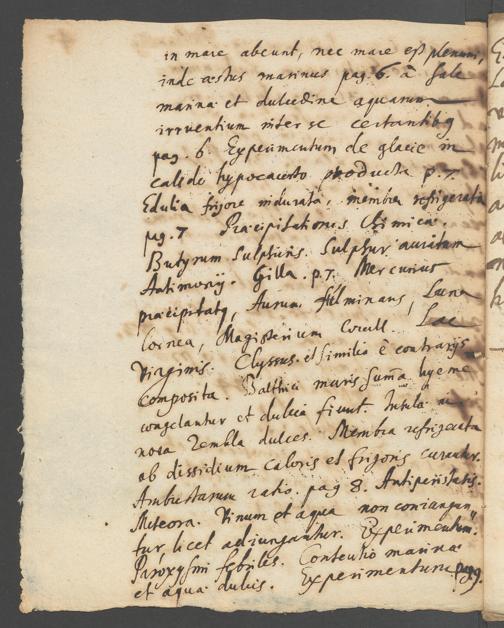 in mare abeunt, nec mare est plenum,
inde æstus marinus pag. 6. à sale
marina et dulcedine aquarum
irruentium inter se certantibq
pag. 6. Experimentum de glacie in
calido hypocausto producta p. 7.
Edulia frigore indurata, membra refrigerata
pag. 7 Præcipitationes Chimicæ.
Butyrum Sulphuris. Sulphur auratum
Antimonij. Gilla. p. 7. Mercurius
præcipitatq, Aurum fulminans, Luna
Cornea, Magisterium Corall. Lac
Virginis. Clyssus et similia è contrarijs
composita. Balthici maris suma hyeme
congelantur et dulcia fiunt. Insula
nova Zembla dulces. Membra refrigerata
ab dissidium caloris et frigoris curantur.
Ambustarum ratio. pag 8. Antiperistasis.
Meteora. Vinum et aqua non coniungun
tur, licet adiungantur. Experimentum.
Paroxysmi febriles. Contentio marina
et aqua dulcis. Experimentum pag 9.